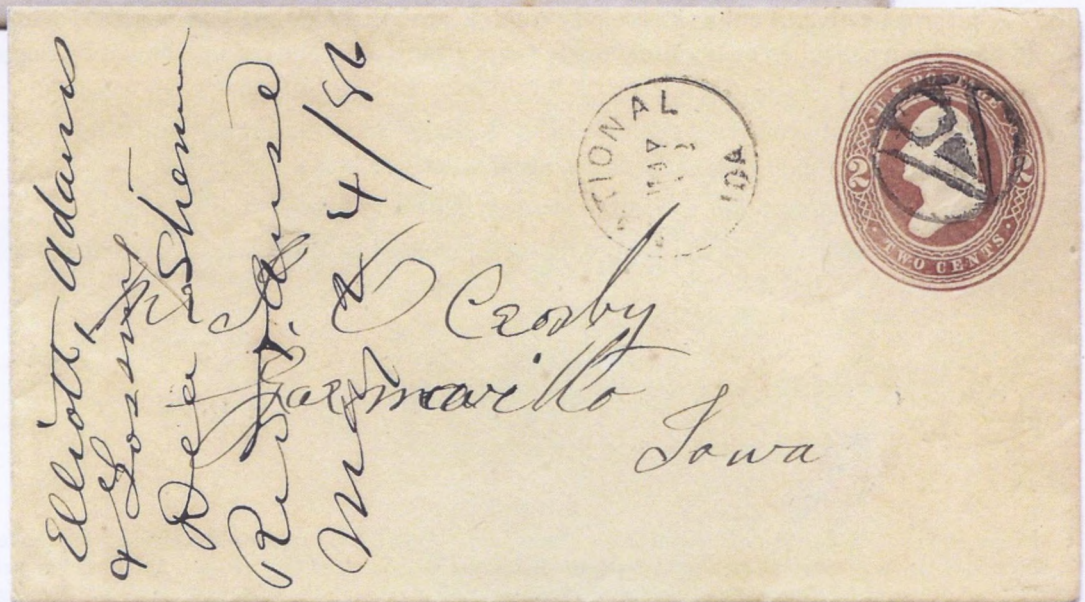 Elliott, Adams
&
Dea Shemm
Rec'd & Ans'd
May 4/86
NATIONAL
MAY
3
IOA
U.S. POSTAGE
2
TWO CENTS
J. O Crosby
Garnavillo
Iowa